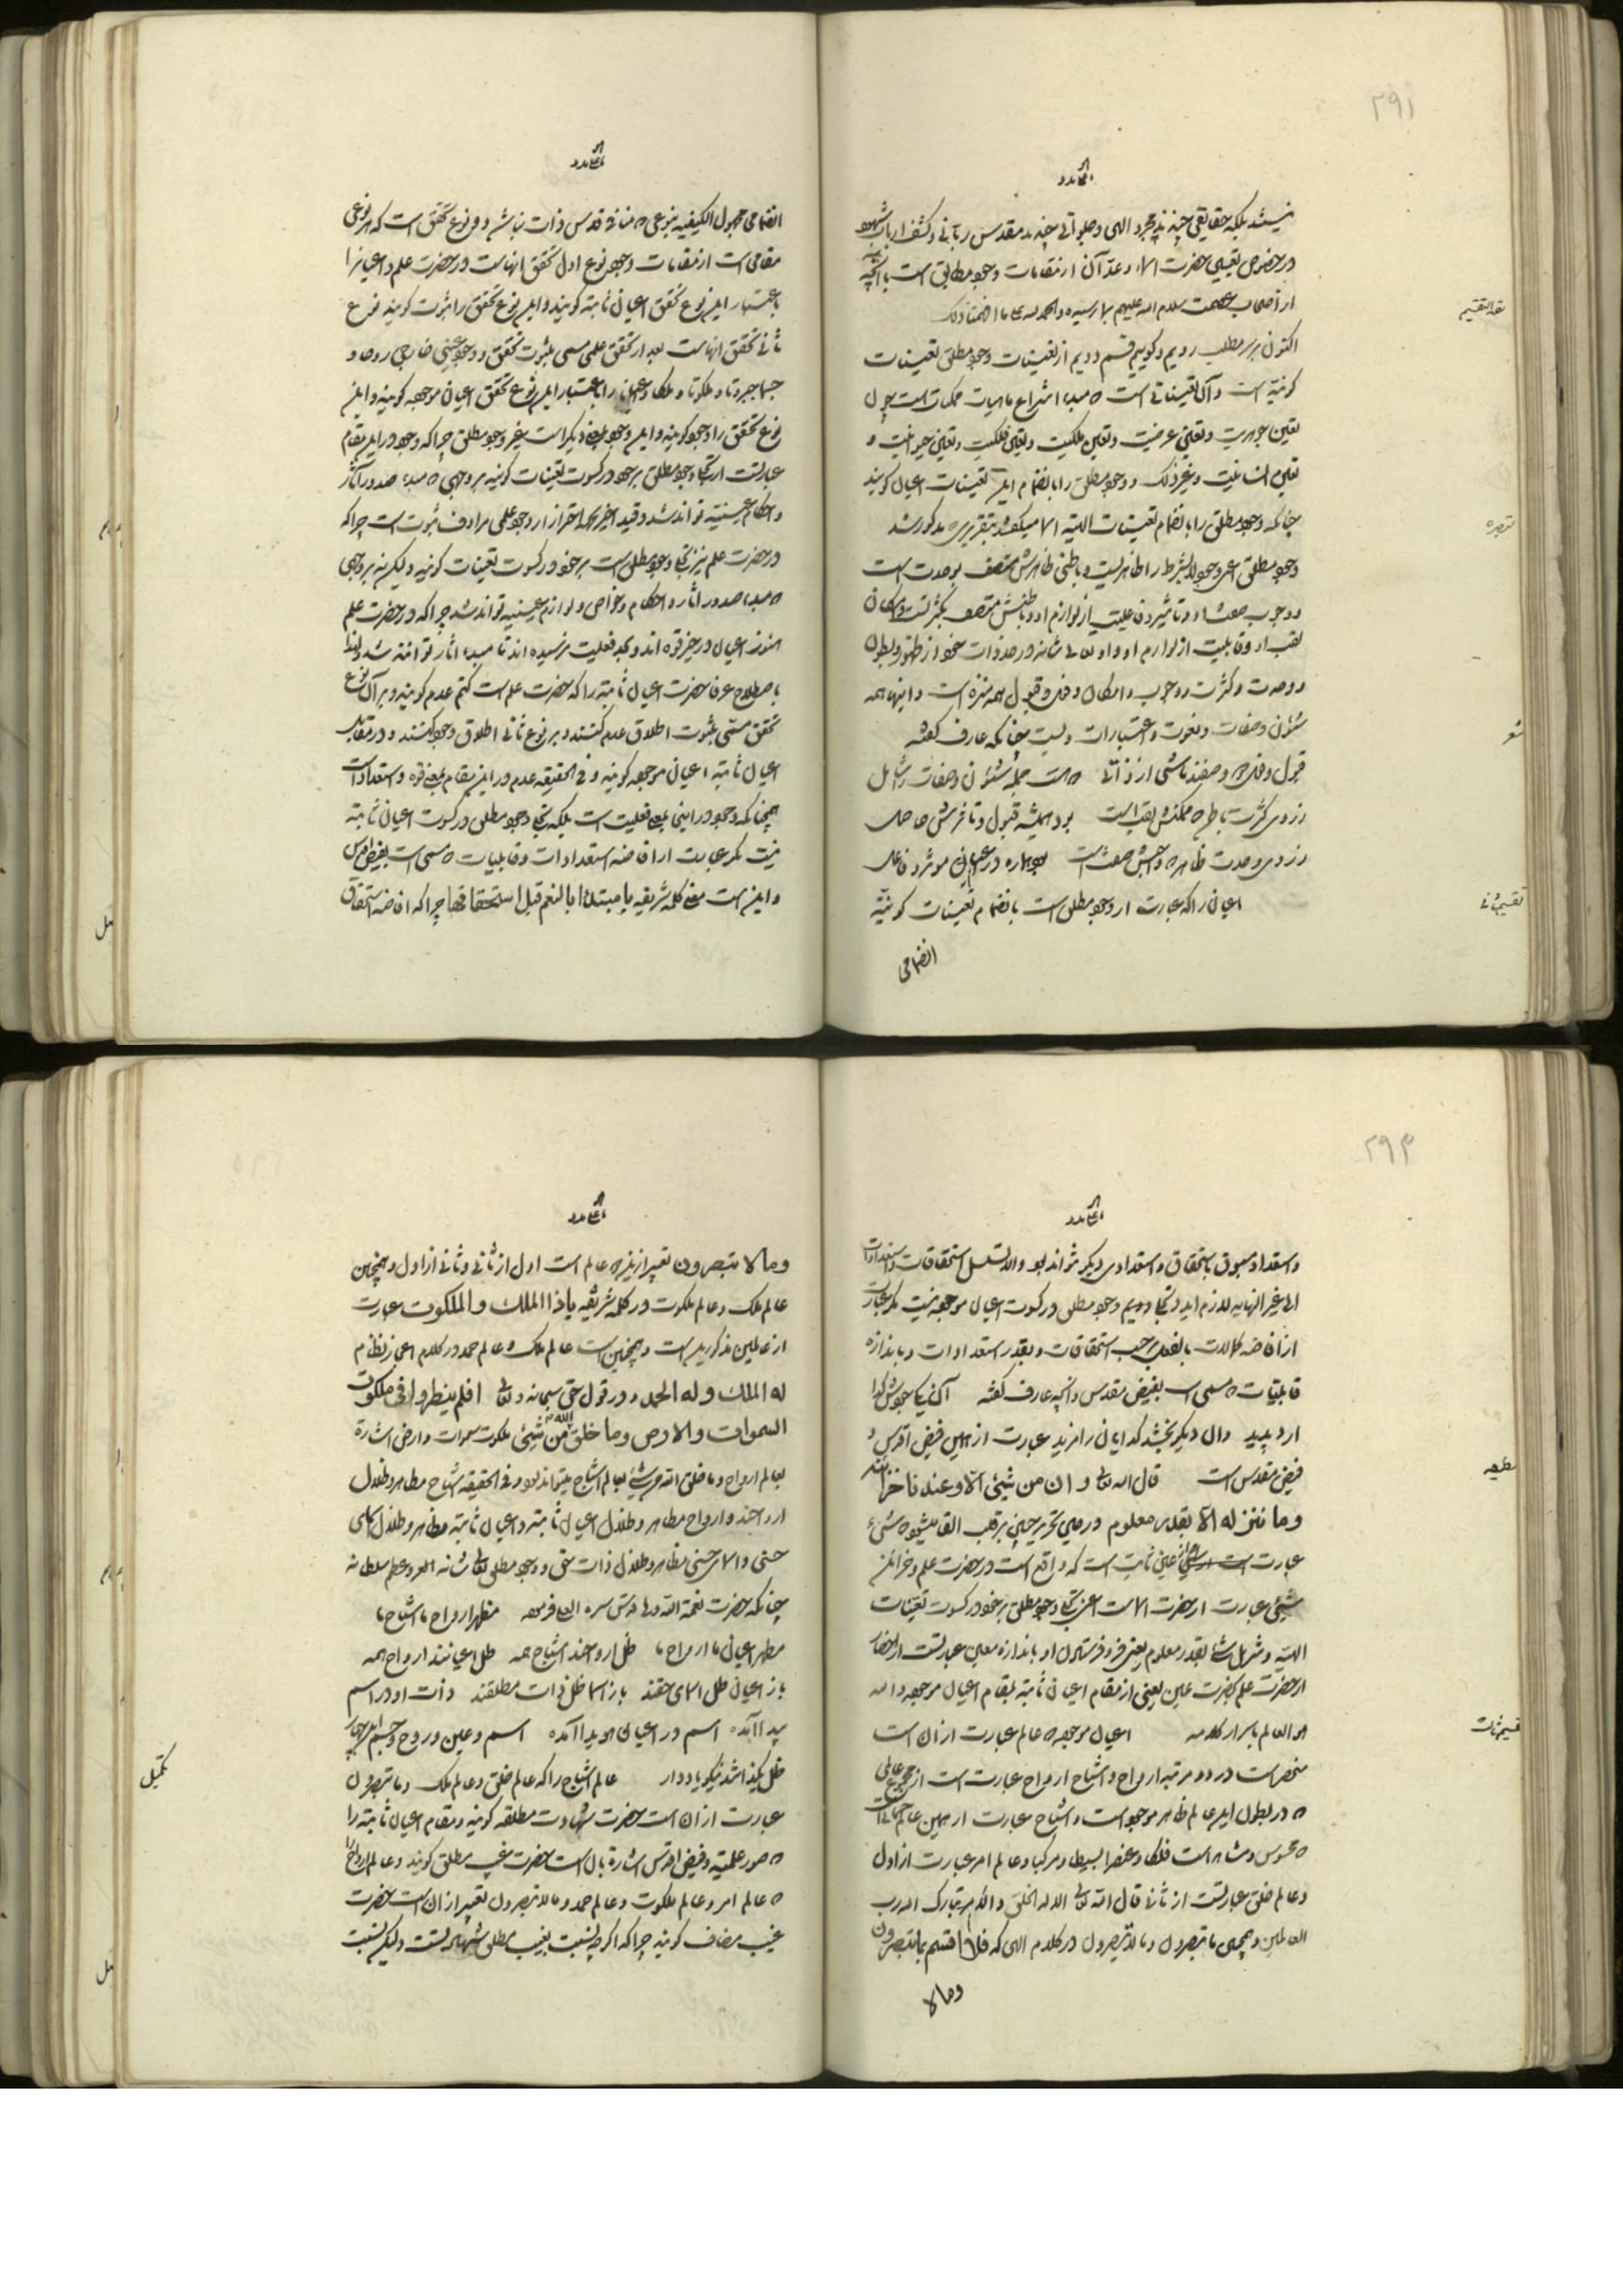 ۲۹۱
نیستند بلکه حقایقی چندند مجرد الهی و صلواتی چندند مقدس ربانی و کشف ارباب شهود
در خصوص تعیین حضرت الاء و عد آن از مقامات وجود مطابق است با آنچه
از اصحاب عصمت سلام الله علیهم بما رسیده والحمد لله علی ما افهمنا ذلک
اکنون بر سر مطلب رویم و گوییم قسم دویم از تعینات وجود مطلق تعینات
کونیه است و آن تعیناتی است که مبدء انتزاع ماهیات ممکنات است چون
تعین جوهریت و تعین عرضیت و تعین ملکیت و تعین فلکیت و تعین حیوانیت و
تعین انسانیت و غیر ذلک و وجود مطلق را بانضمام این تعینات اعیان گویند
چنانکه وجود مطلق را بانضمام تعینات الهیه الاء میگفتند بتقریری که مذکور شد
وجود مطلق اعنی وجود لابشرط را ظاهریست و باطنی ظاهرش متصف بوحدت است
و وجوب صفت او و تأثیر و فاعلیت از لوازم او و باطنش متصف بکثرتست و امکان
لقب او و قابلیت از لوازم او و او تعالی شانه در حد ذات خود از ظهور و بطون
و وحدت و کثرت و وجوب و امکان و فعل و قبول همه منزه است و اینها همه
شئون و صفات و نعوت و اعتبارات ویست چنانکه عارف گفته
قبول و فعل دو صفتند ناشی از ذاتی که هست جمله شئون و صفات را شامل
ز روی کثرت باطن که ممکنش لقب است بود همیشه قبول و تأثرش حاصل
ز روی وحدت ظاهر که واجبش صفت است هماره در اعیان موثر و فاعل
اعیان را که عبارت از وجود مطلق است بانضمام تعینات کونیه
انضمامی
شعر
تقسیم ثانی
انضمامی مجهول الکیفیه بنوعی که منافی قدس ذات نباشد دو نوع تحقق است که هر نوعی
مقامی است از مقامات وجود نوع اول تحقق انهاست در حضرت علم و اعیانرا
باعتبار این نوع تحقق اعیان ثابته گویند و این نوع تحقق را ثبوت گویند نوع
ثانی تحقق انهاست بعد از تحقق علمی مسمی بثبوت تحقق و وجود عینی خارجی روحا و
جسما جبروتا و ملکوتا و ملکا و اعیان را باعتبار این نوع تحقق اعیان موجوده گویند و این
نوع تحقق را وجود گویند و این وجود بمعنی دیگر است بغیر وجود مطلق چرا که وجود در این مقام
عبارتست از تجلی وجود مطلق بر خود در کسوت تعینات کونیه بر وجهی که مبدء صدور آثار
و احکام عینیه تواند شد و قید اخیر بجهة احتراز از وجود علمی مرادف ثبوت است چرا که
در حضرت علم نیز تجلی وجود مطلق است بر خود در کسوت تعینات کونیه و لیکن نه بر وجهی
که مبدء صدور آثار و احکام و خواص و لوازم عینیه تواند شد چرا که در حضرت علم
هنوز اعیان در حیز قوه اند و بحد فعلیت نرسیده اند تا مبدء آثار توانند شد و لهذا
باصطلاح عرفا حضرت اعیان ثابته را که حضرت علم است کتم عدم گویند و بر آن نوع
تحقق مسمی بثبوت اطلاق عدم کنند و بر نوع ثانی اطلاق وجود کنند و در مقابل
اعیان ثابته اعیان موجوده گویند و فی الحقیقه عدم در این مقام بمعنی قوه و استعداد است
همچنانکه وجود در اینجا بمعنی فعلیت است بلکه تجلی وجود مطلق در کسوت اعیان ثابته
نیست مگر عبارت از افاضه استعدادات و قابلیات که مسمی است بفیض اقدس
و این است معنی کلمه شریفه یا مبتدئا بالنعم قبل استحقاقها چرا که افاضه استحقاق
۲۹۳
و استعداد مسبوق باستحقاق و استعدادی دیگر نتواند بود والا تسلسل استحقاقات و استعدادات
الی غیر النهایه لازم اید و تجلی دویم وجود مطلق در کسوت اعیان موجوده نیست مگر عبارت
از افاضه کمالات بالفعل بر حسب استحقاقات و بقدر استعدادات و باندازه
قابلیات که مسمی است بفیض مقدس و آنچه عارف گفته آن یکی جودش گدا
آرد پدید وان دیگر بخشد گدایان را مزید عبارت از همین فیض اقدس و
فیض مقدس است قال الله تعالی و ان من شیئ الا و عندنا خزائنه
وما ننزله الا بقدر معلوم در حین تحریر چنین بر قلب القا میشود که شیئ
عبارت است از اعیانی ثابت است که واقع است در حضرت علم و خزائن
شیئ عبارت از حضرت الاء است اعنی تجلی وجود مطلق بر خود در کسوت تعینات
الهیه و تنزیل شیئ بقدر معلوم یعنی فرو فرستادن او باندازه معین عبارتست از احضار
از حضرت علم بحضرت عین یعنی از مقام اعیان ثابته بمقام اعیان موجوده والله
هو العالم باسرار کلامه اعیان موجوده که عالم عبارت از ان است
منحصر است در دو مرتبه ارواح و اشباح ارواح عبارت است از مجموع عالمی
که در بطون این عالم ظاهر موجود است و اشباح عبارت از همین عالم جسمانیات
که محسوس و مشاهد است فلکا و عنصرا بسیطا و مرکبا و عالم امر عبارت از اول
و عالم خلق عبارتست از ثانی قال الله تعالی الا له الخلق والامر تبارک الله رب
العالمین و همچنین ما تبصرون و ما لا تبصرون در کلام الهی که فلا اقسم بما تبصرون
وما لا
وما لا تبصرون تعبیر از این دو عالم است اول از ثانی و ثانی از اول و همچنین
عالم ملک و عالم ملکوت در کلمه شریفه یا ذا الملک والملکوت عبارت
از عالمین مذکورین است و همچنین است عالم ملک و عالم حمد در کلام اعجاز نظام
له الملک وله الحمد و در قول حق سبحانه و تعالی افلم ینظروا فی ملکوت
السموات والارض وما خلق الله من شیئ ملکوت سموات و ارض اشارة
بعالم ارواح و ما خلق الله من شیئ بعالم اشباح میتواند بود و فی الحقیقه اشباح مظاهر و ظلال
ارواحند و ارواح مظاهر و ظلال اعیان ثابته و اعیان ثابته مظاهر و ظلال اسمای
حسنی و اسماء حسنی مظاهر و ظلال ذات حق و وجود مطلق تعالی شانه العزیز و عظم سلطانه
چنانکه حضرت نعمة الله ولی قدس سره العالی فرموده مظهر ارواح ما اشباح ما
مظهر اعیان ما ارواح ما ظل ارواحند اشباح همه ظل اعیانند ارواح همه
باز اعیان ظل اسمای حقند باز اسما ظل ذات مطلقند ذات او در اسم
پیدا آمده اسم در اعیان هویدا آمده اسم و عین و روح و جسم این هر چهار
ظل یک ذاتند نیکو یاد دار عالم اشباح را که عالم خلق و عالم ملک و ما تبصرون
عبارت از ان است حضرت شهادت مطلقه گویند و مقام اعیان ثابته را
که صور علمیه و فیض اقدس اشارة بان است حضرت غیب مطلق گویند و عالم ارواح را
که عالم امر و عالم ملکوت و عالم حمد و ما لا تبصرون تعبیر از ان است حضرت
غیب مضاف گویند چرا که اگر چه نسبت بغیب مطلق شهادتست و لیکن نسبت
تکمیل